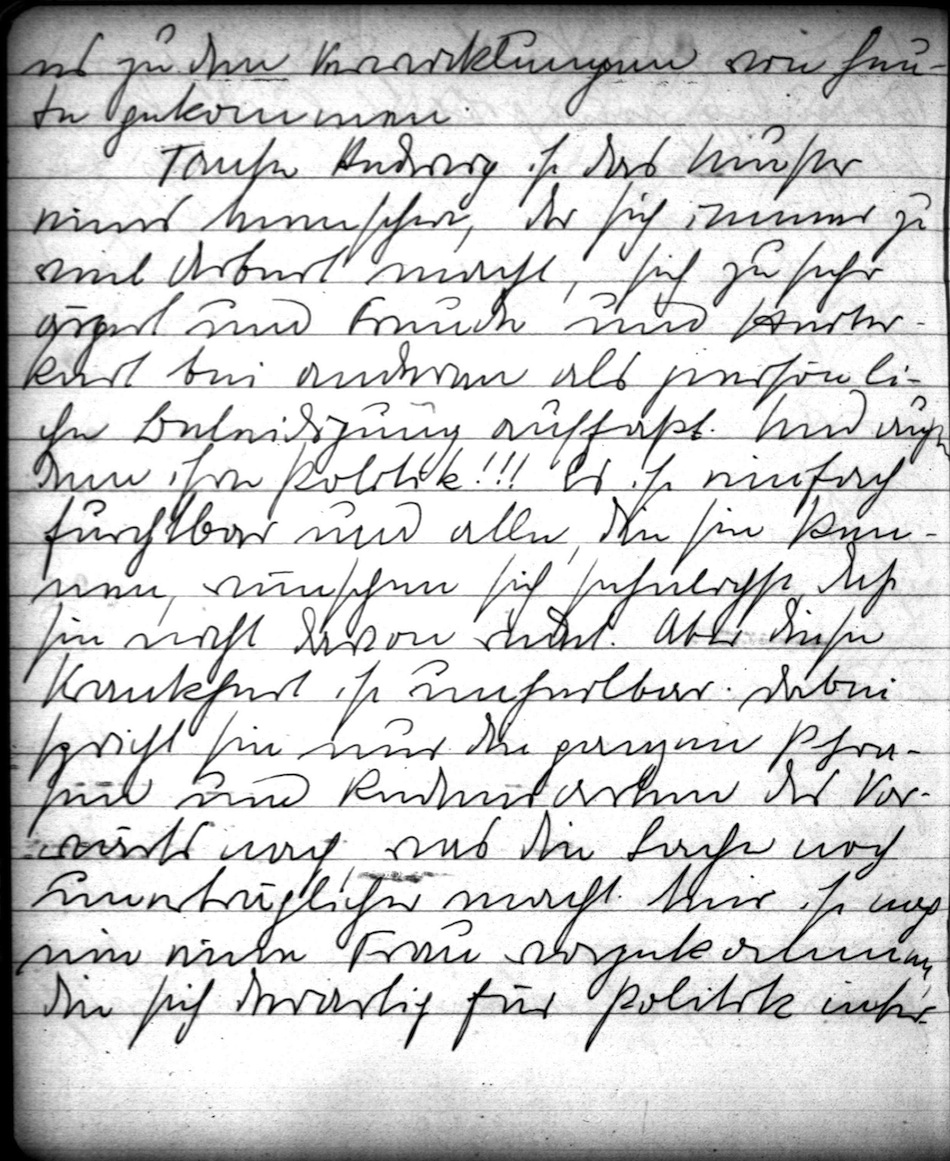 es zu den Verwicklungen wie heu-
te gekommen.
Tante Hedwig ist das Muster
eines Menschen, der sich immer zu
viel Arbeit macht, sich zu sehr
ärgert und Freude und Heiter-
keit bei anderen als persönli-
che Beleidigung auffaßt. Und außer-
dem ihre Politik!!! Es ist einfach
furchtbar und alle, die sie ken-
nen, wünschen sich sehnlichst, daß
sie nicht davon redet. Aber diese
Krankheit ist unheilbar. Dabei
spricht sie nur die ganzen Phra-
sen und Redensarten des Vor-
wärts nach, was die Sache noch
unerträglicher macht. Mir ist noch
nie eine Frau vorgekommen,
die sich derartig für Politik inter-